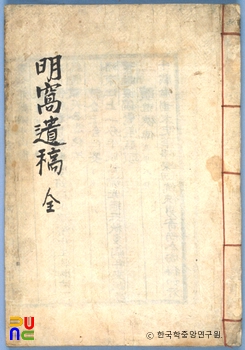 明窩遺稿 全
FUNC
© 한국학중앙연구원.